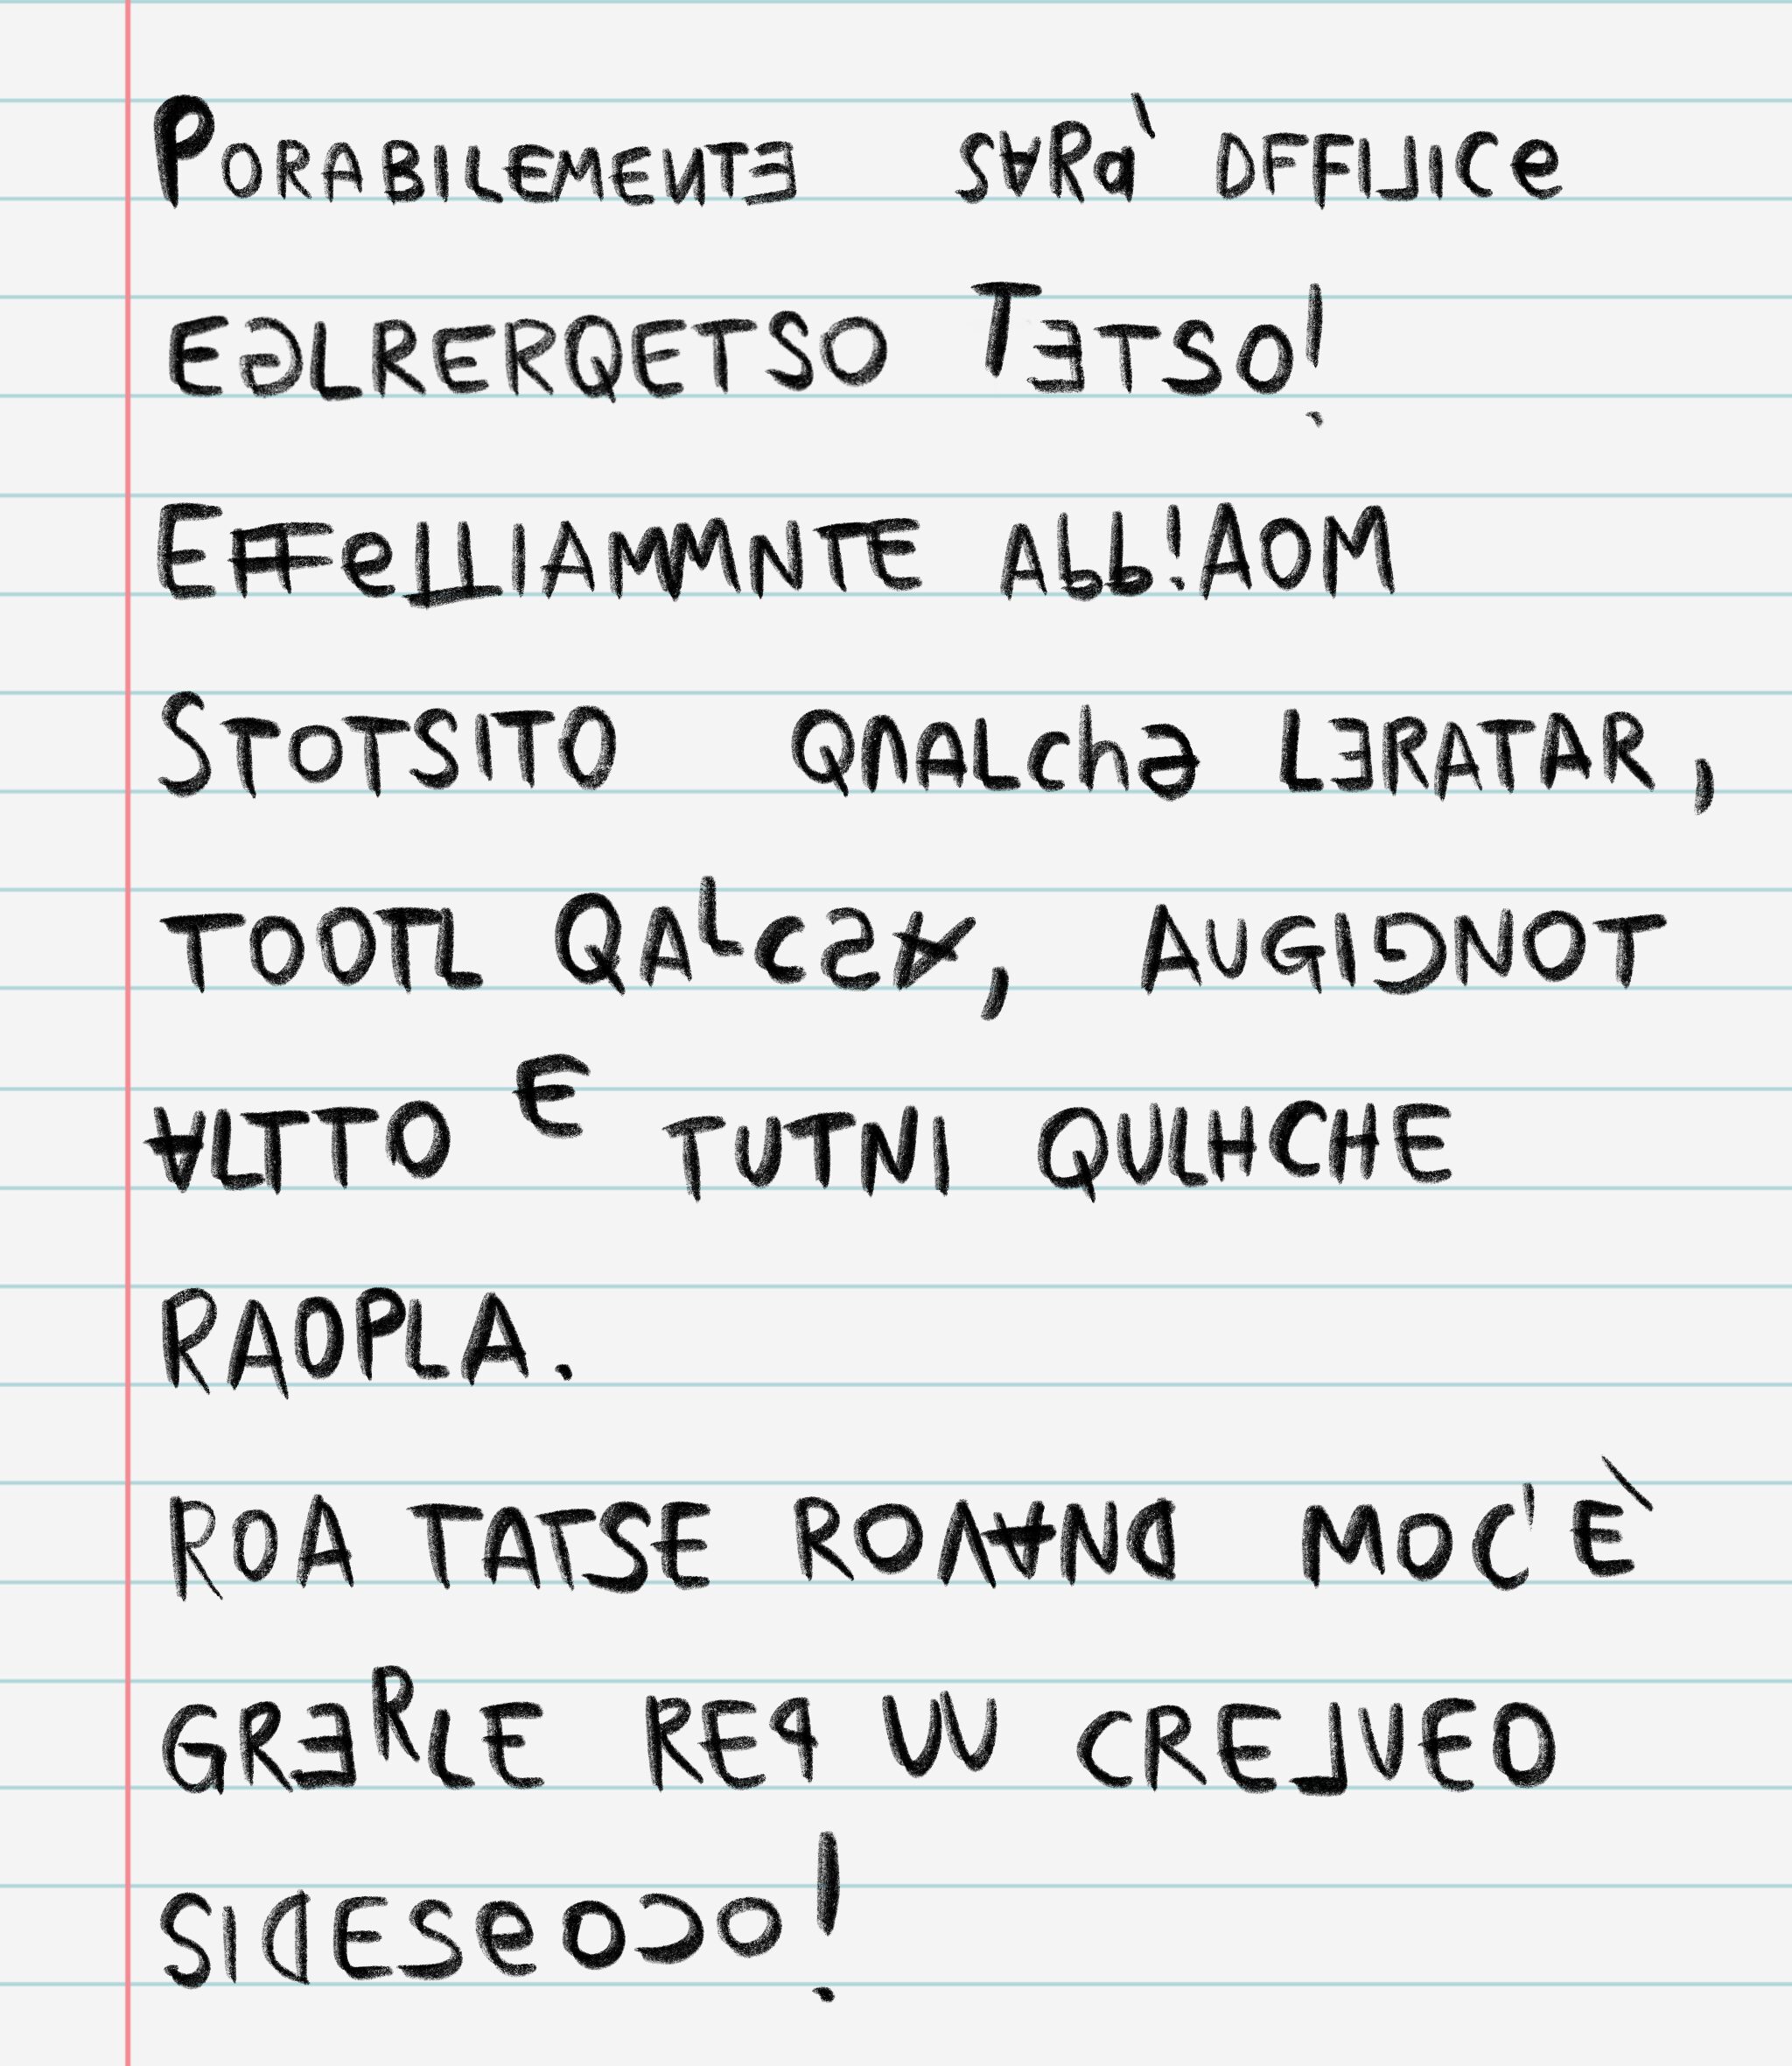 PORABILEMENTE SARA' DFFILICE
EGLRERQETSO TETSO!
EFFELLIAMMNTE ABB!AOM
STOTSITO QUALCHE LERATAR,
TOOTL QALCSA, AUGIGNOT
ALTTO E TUTNI QULHCHE
RAOPLA.
ROA TATSE ROVAND MOC'È
GRERLE REP UU CRELVEO
SIDESEOCO!